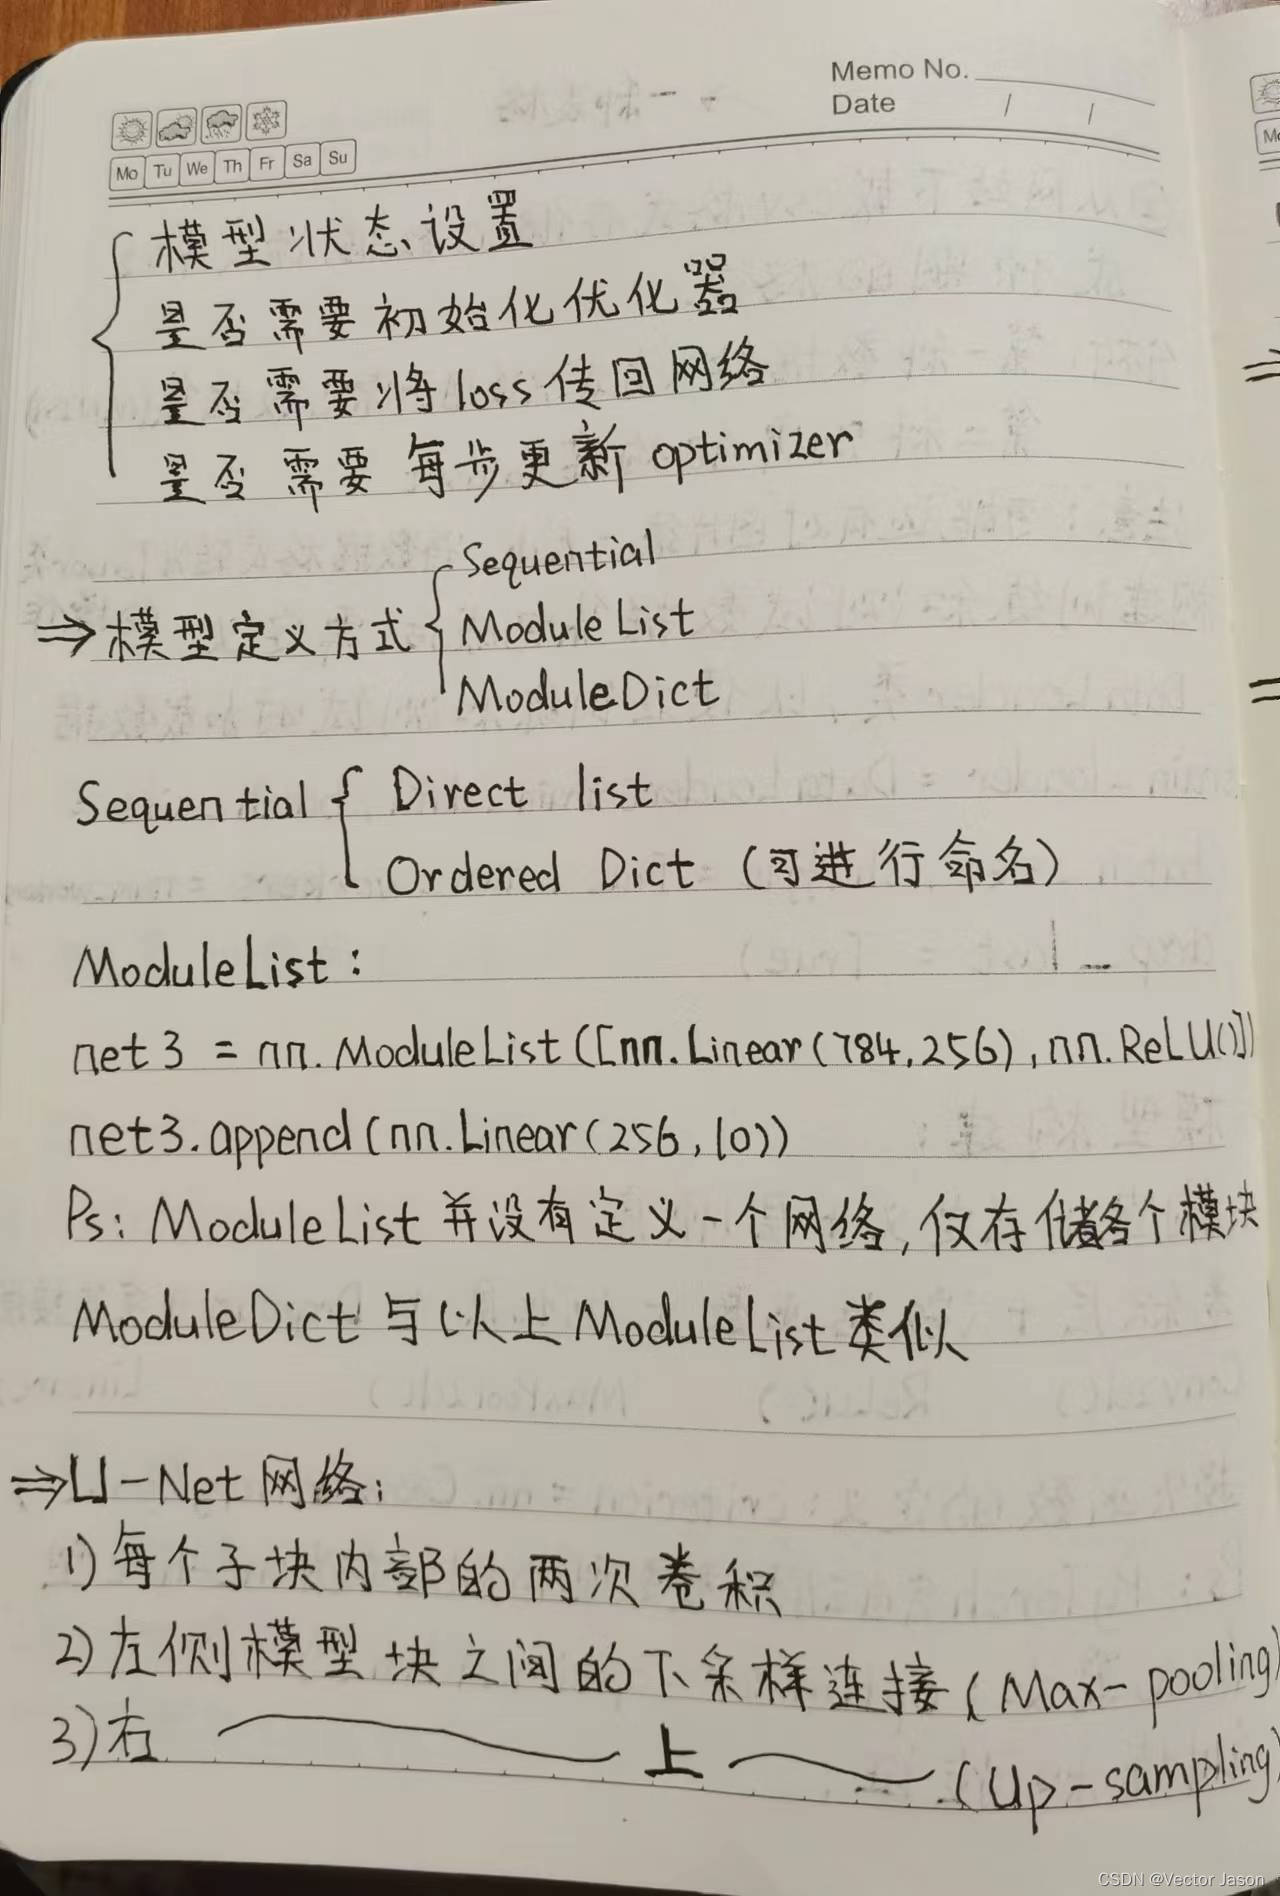 Memo No.
Date / /
Mo Tu We Th Fr Sa Su
模型状态设置
是否需要初始化优化器
是否需要将loss传回网络
是否需要每步更新optimizer
Sequential
⇒模型定义方式 ModuleList
ModuleDict
Sequential { Direct list
Ordered Dict (可进行命名)
ModuleList:
net3 = nn.ModuleList([nn.Linear(784,256),nn.ReLU()])
net3.append(nn.Linear(256,10))
Ps: ModuleList并没有定义一个网络,仅存储各个模块
ModuleDict与以上ModuleList类似
⇒U-Net网络:
1)每个子块内部的两次卷积
2)左侧模型块之间的下采样连接(Max-pooling)
3)右 上 (Up-sampling)
CSDN @Vector Jason